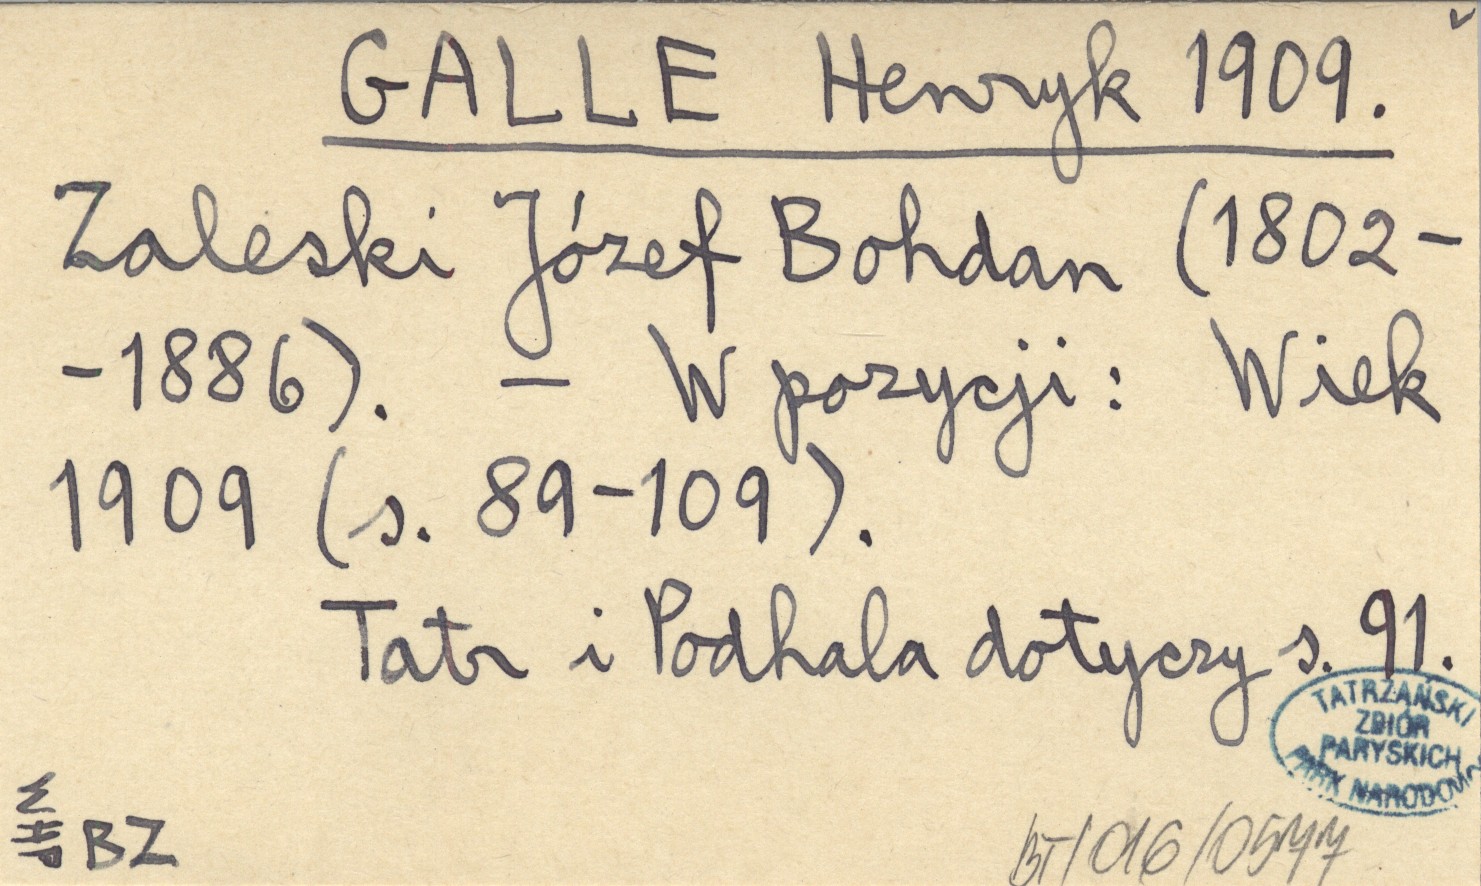 GALLE Henryk 1909.
Zaleski Józef Bohdan (1802-
-1886). — W pozycji: Wiek
1909 (s. 89-109).
Tatr i Podhala dotyczy s. 91.
TATRZAŃSKI
ZBIÓR
PARYSKICH
PARK NARODOWY
BZ
BT/016/0577